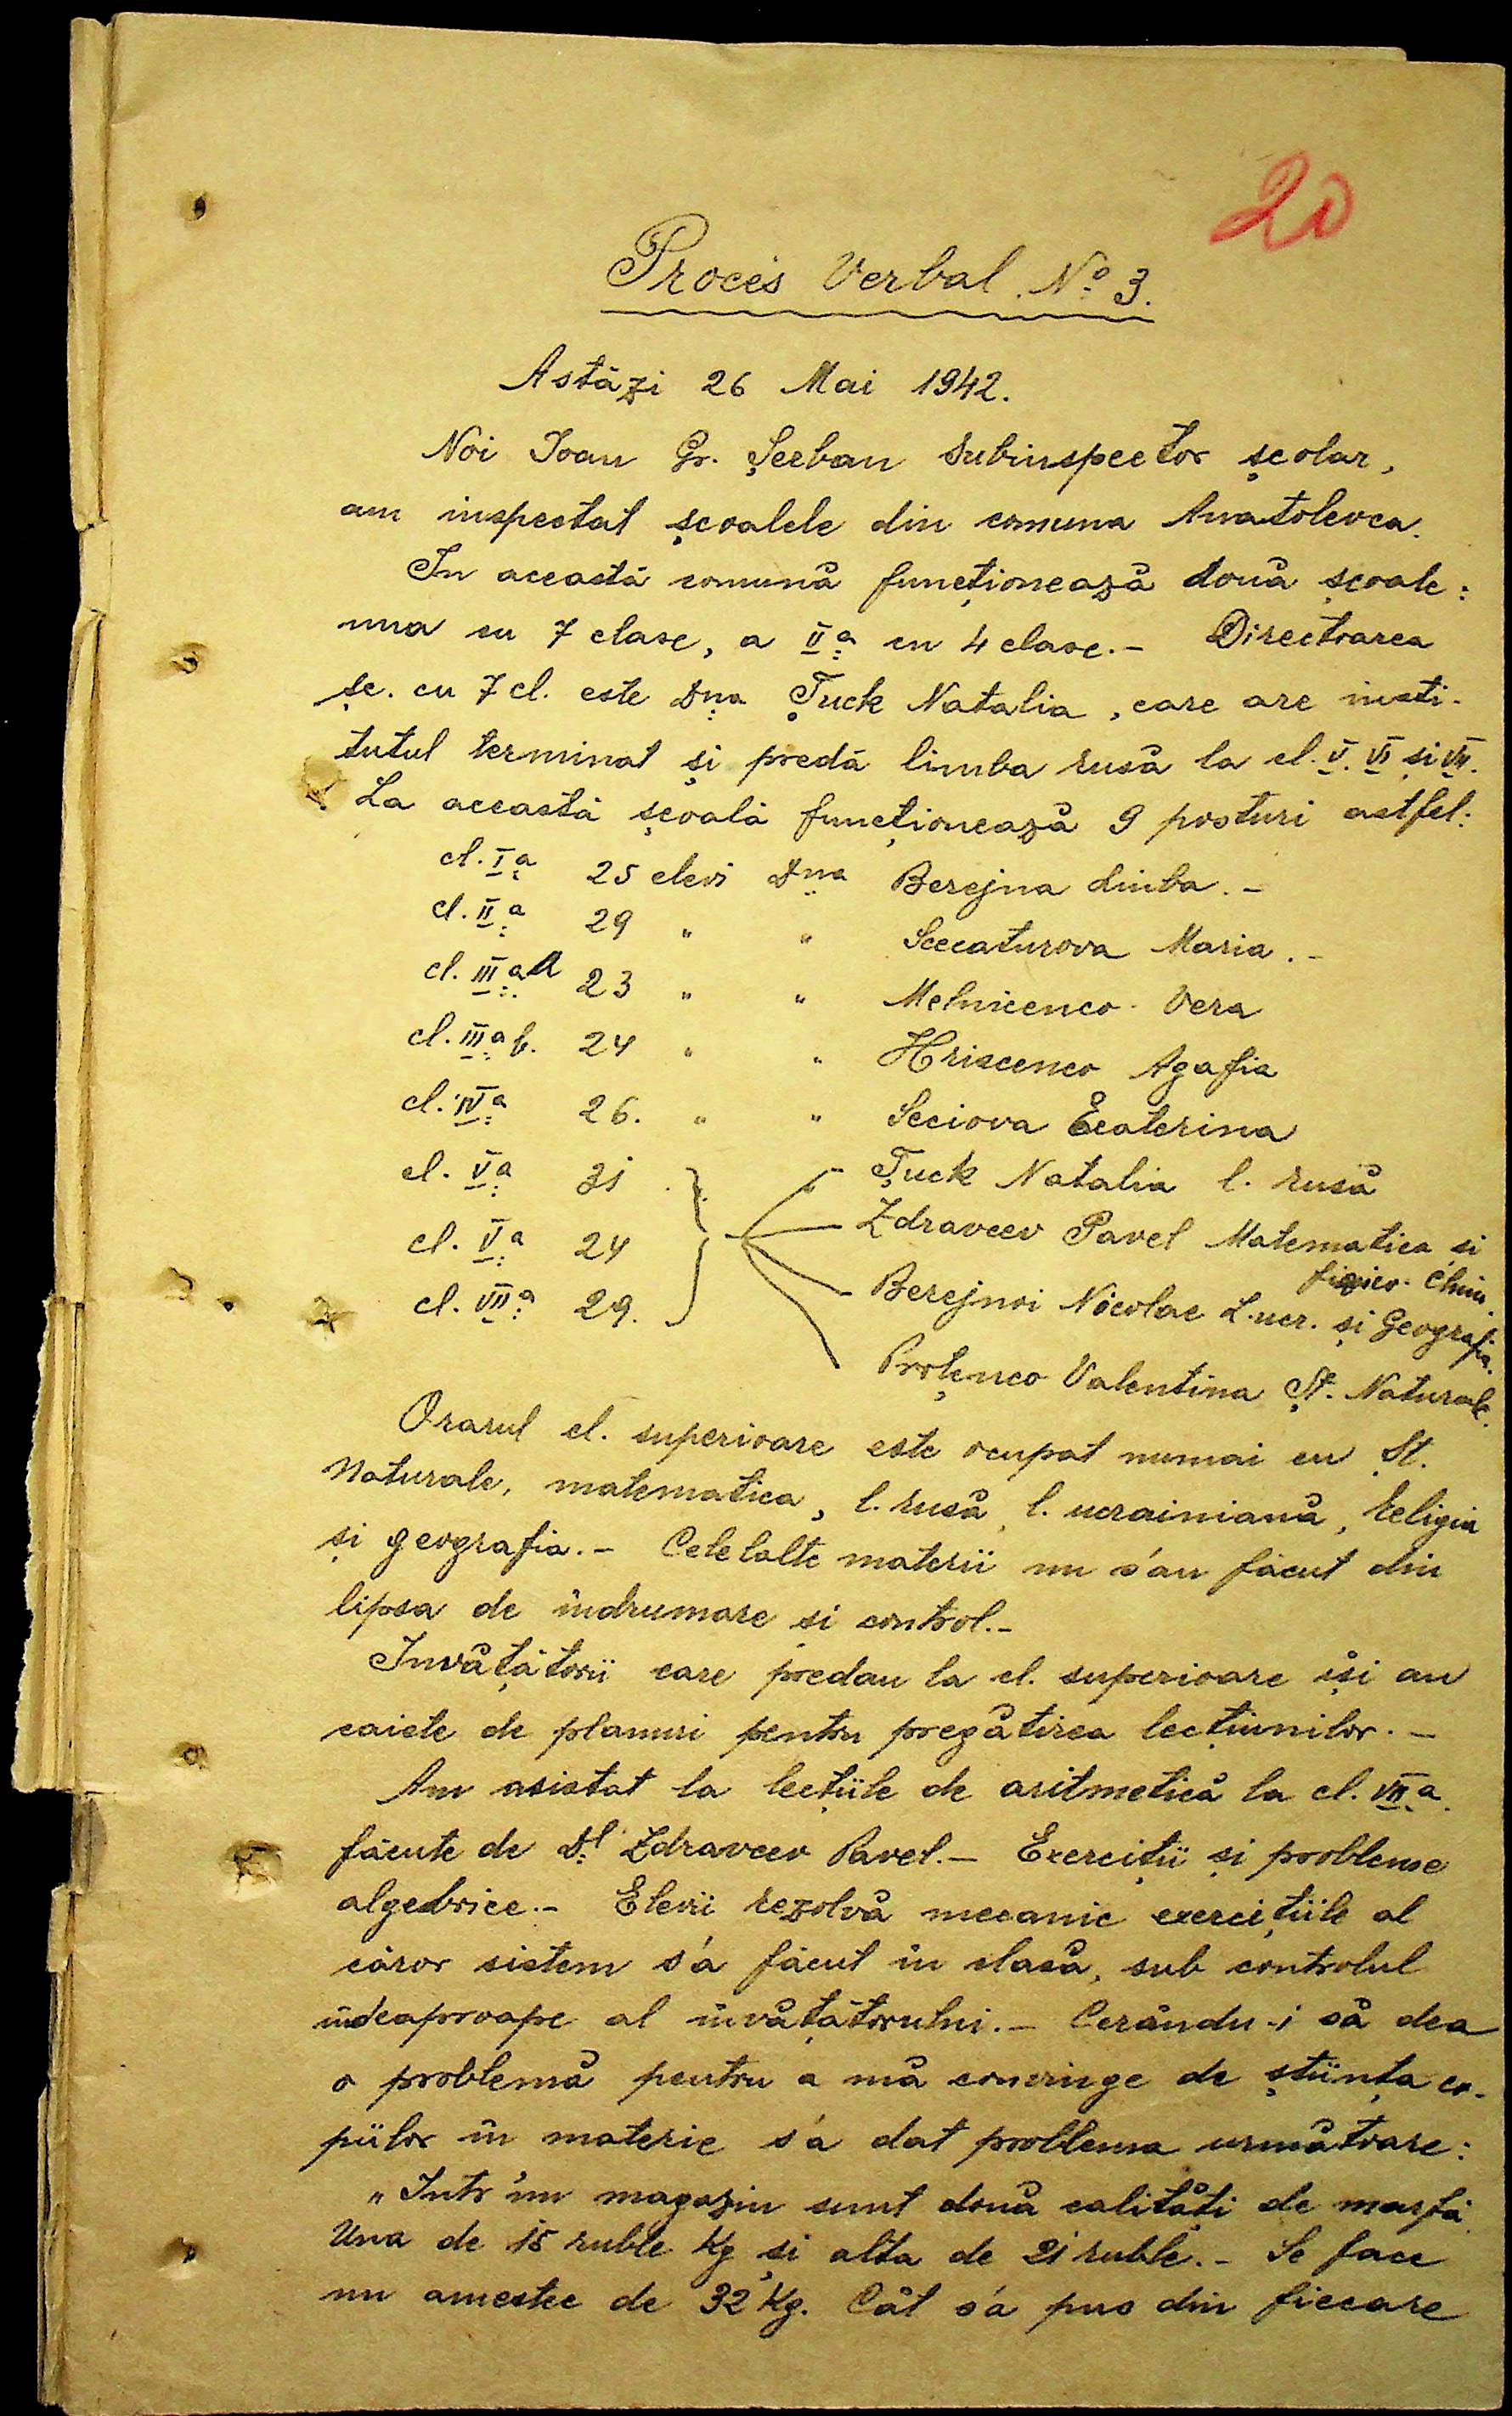 20
Procés Verbal Nº 3.
Astăzi 26 Mai 1942.
Noi Ioan Gr. Șerban Subinspector școlar,
am inspectat școalele din comuna Anatolevca.
In această comună funcționează două școale:
una cu 7 clase, a IIa cu 4 clase.- Directoarea
șc. cu 7 cl. este Dna Țuck Natalia, care are insti-
tutul terminat și predă limba rusă la cl. V. VI și VII.
La această școală funcționează 9 posturi astfel:
cl. Ia 25 elevi Dna Berejna Liuba.-
cl. IIa 29 " " Secaturova Maria.-
cl. IIIa A 23 " " Melnicenco Vera
cl. IIIa b. 24 " " Hriscenco Agafia
cl. IVa 26. " " Seciova Ecaterina
cl. Va 31 - Țuck Natalia l. rusă
cl. Va 24 - Zdravcev Pavel Matematica și fizico-chim.
cl. VIIa 29. - Berejnoi Nicolae L. ucr. și Geografia.
Proțenco Valentina Șt. Naturale.
Orarul cl. superioare este ocupat numai cu Șt.
Naturale, matematica, l. rusă, l. ucrainiană, religia
și geografia.- Celelalte materii nu s'au făcut din
lipsa de îndrumare si control.-
Invățătorii care predau la cl. superioare iși au
caiete de planuri pentru pregătirea lecțiunilor.-
Am asistat la lecțiile de aritmetică la cl. VIIa.
făcute de Dl Zdravcev Pavel.- Exerciții și probleme
algebrice.- Elevii rezolvă mecanic exercițiile al
căror sistem s'a făcut în clasă, sub controlul
îndeaproape al învățătorului.- Cerându-i să dea
o problemă pentru a mă convinge de știința co-
piilor în materie s'a dat problema următoare:
"Intr'un magazin sunt două calități de marfă
Una de 15 ruble kg și alta de 21 ruble.- Se face
un amestec de 32 kg. Cât s'a pus din fiecare